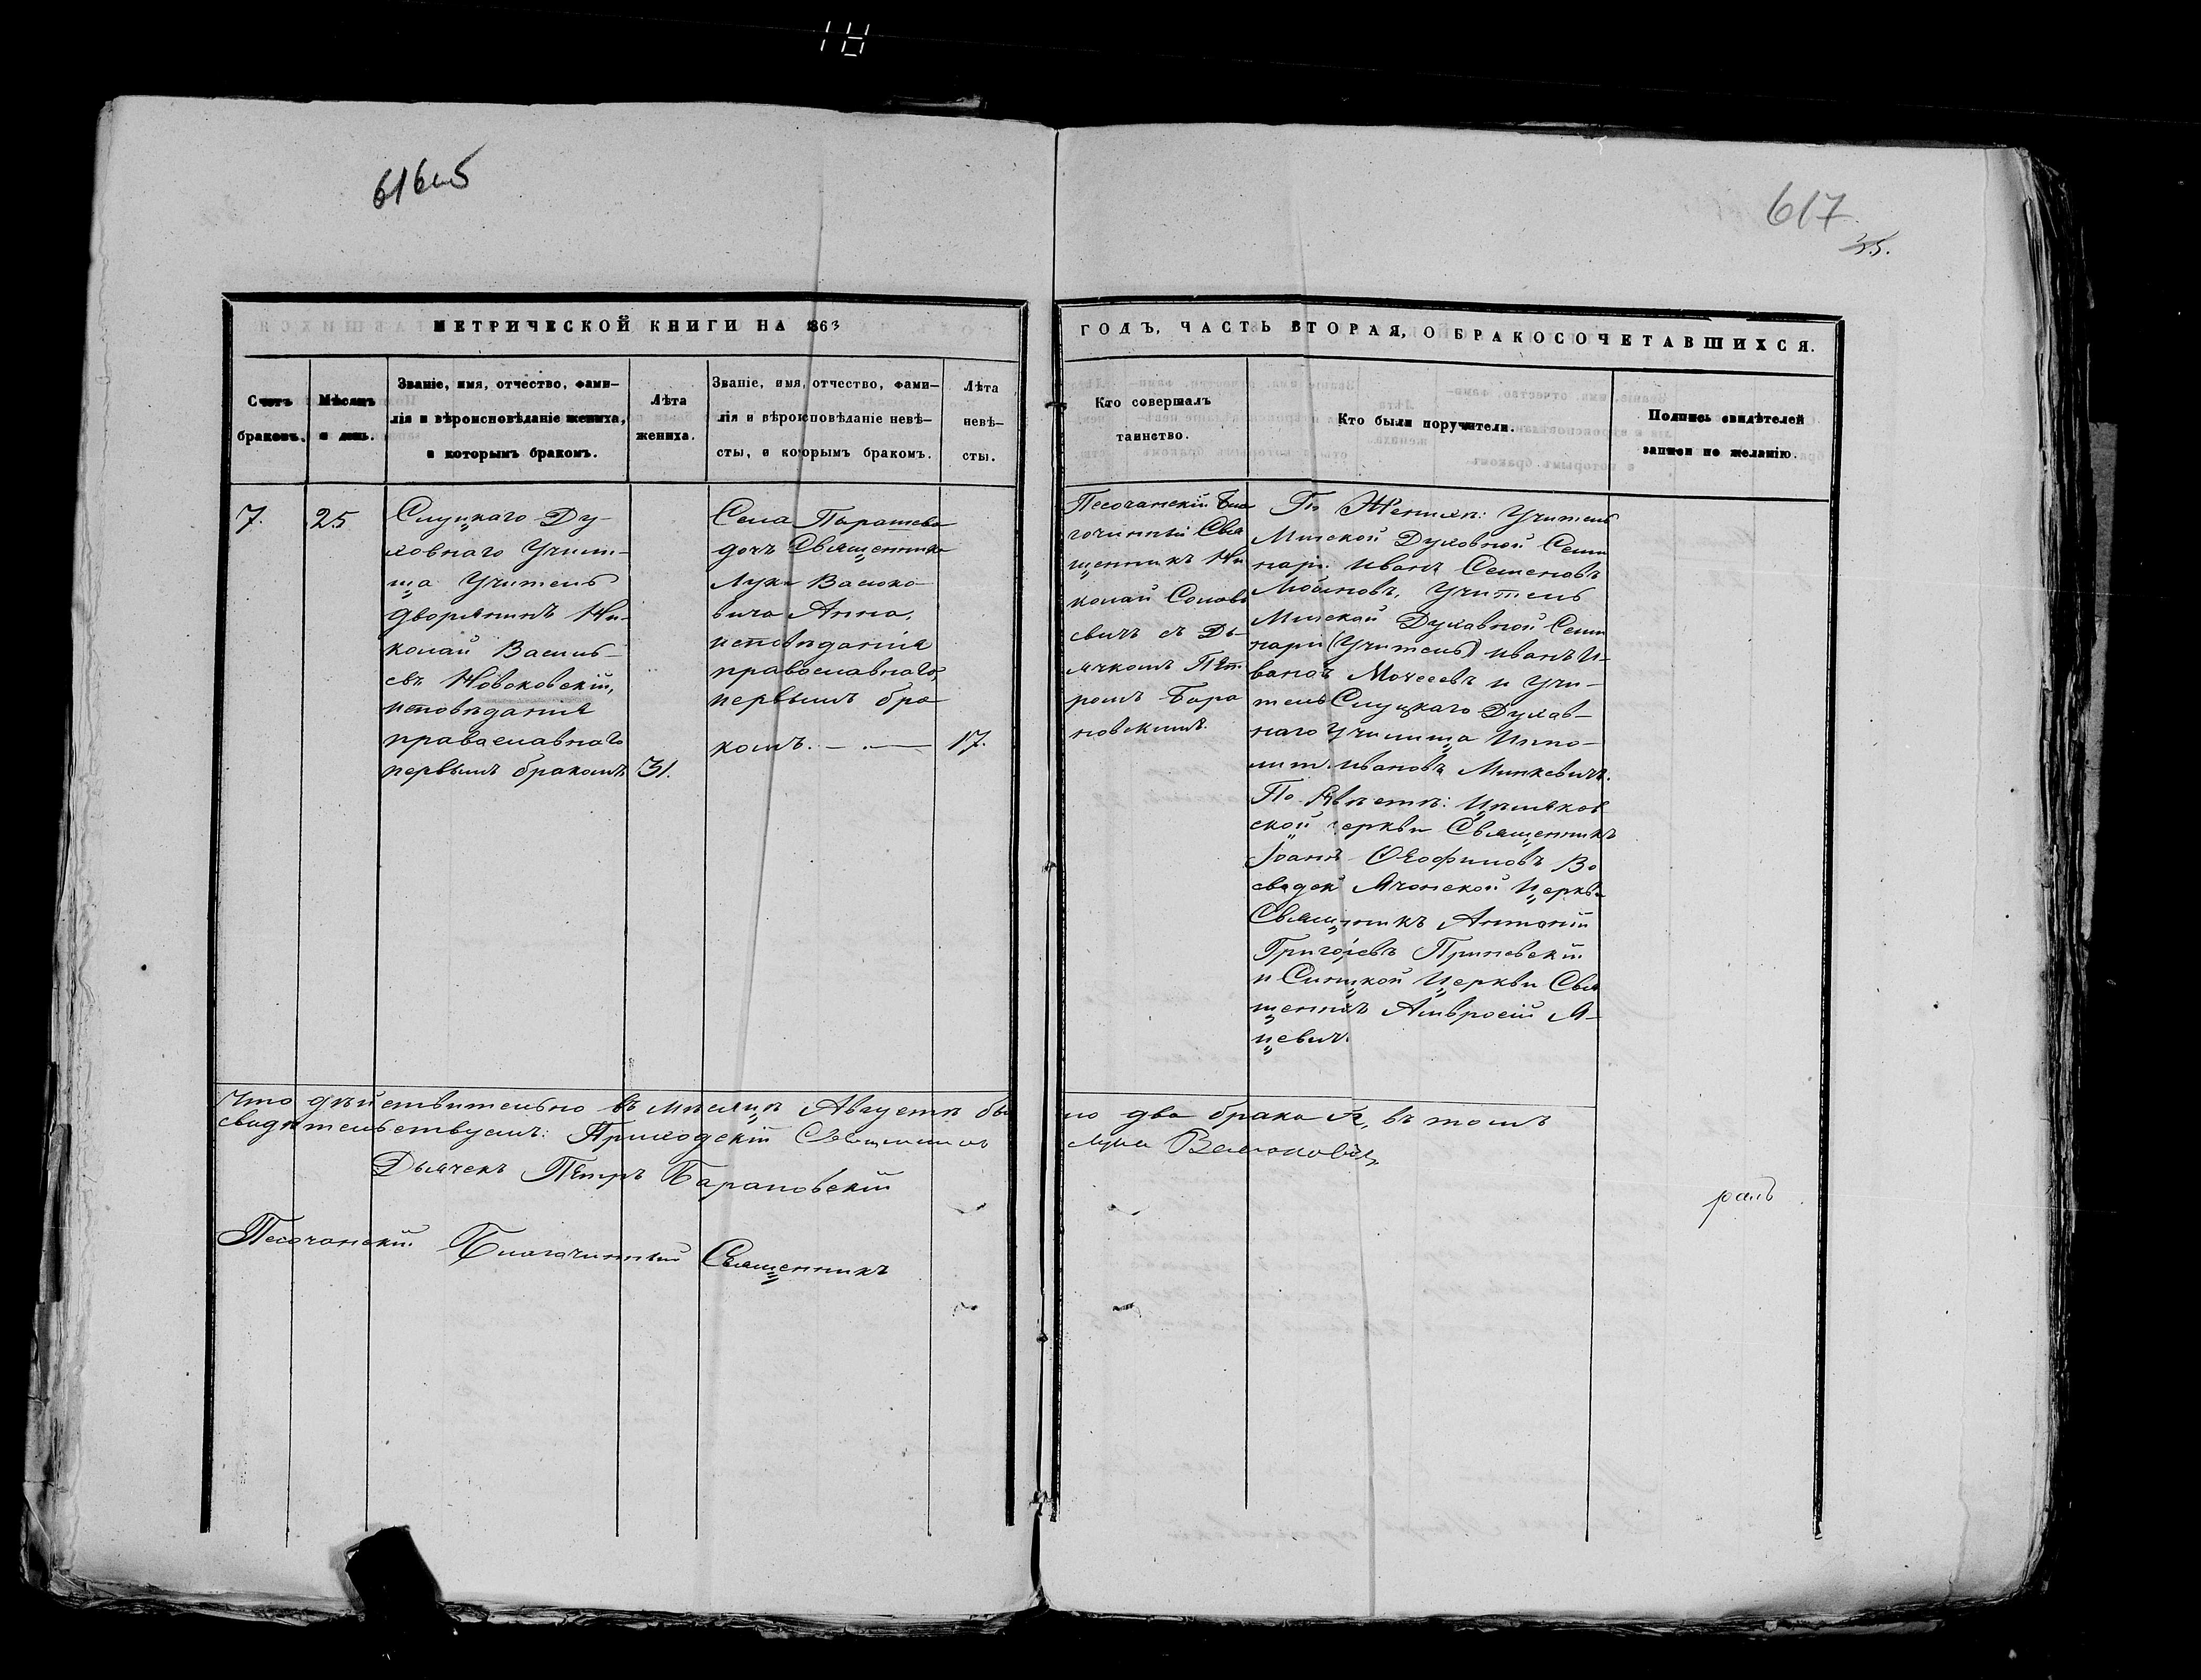 616 об
617
35.
МЕТРИЧЕСКОЙ КНИГИ НА 1863
ГОДЪ, ЧАСТЬ ВТОРАЯ, О БРАКОСОЧЕТАВШИХСЯ.
Счетъ
браковъ.
Мѣсяцъ
и день.
Званіе, имя, отчество, фами-
лія и вѣроисповѣданіе жениха,
и которымъ бракомъ.
Лѣта
жениха.
Званіе, имя, отчество, фами-
лія и вѣроисповѣданіе невѣ-
сты, и которымъ бракомъ.
Лѣта
невѣ-
сты.
Кто совершалъ
таинство.
Кто были поручители.
Подпись свидѣтелей
записи по желанію.
7.
25
Слуцкаго Ду-
ховнаго Учили-
ща Учитель
дворянинъ Ни-
колай Василь-
евъ
исповѣданія
православнаго
первымъ бракомъ
31.
Села
дочь Священника
Луки Васюко-
вича Анна,
исповѣданія
православнаго,
первымъ бра
комъ.
17.
Песочанскій Бла
гочинный Свя
щенникъ Ни
колай
съ Дь-
ячкомъ Пет-
ромъ Бара
новскимъ.
По Женихѣ: Учитель
Минской Духовной Семи
наріи Иванъ Семеновъ
Учитель
Минской Духовной Семи
наріи (Учитель) Иванъ И-
вановъ и Учи-
тель Слуцкаго Духов-
наго Училища Иппо-
литъ Ивановъ Минкевичъ.
По Невѣстѣ:
ской Церкви Священникъ
Іоаннъ
Церкви
Священникъ Антоній
Григорьевъ
и Церкви Свя
щенникъ Амвросій Я-
цевичъ.
Что дѣйствительно въ мѣсяцѣ Августѣ бы
ло два брака въ томъ
свидѣтельствуемъ: Приходскій Священникъ
Лука Васюковичъ
Дьячекъ Петръ Барановскій
Песочанскій Благочинный Священникъ